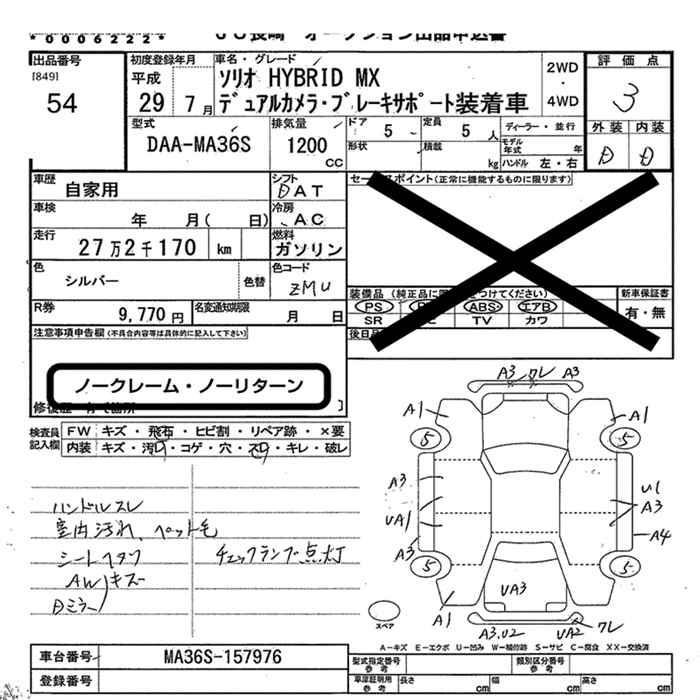 *0006222*
ＪＵ長崎 オークション出品申込書
出品番号
[849]
54
初度登録年月
平成
29 7月
車名・グレード
ソリオ HYBRID MX
デュアルカメラ・ブレーキサポート装着車
2WD
・
4WD
評価点
3
外装 内装
D D
型式
DAA-MA36S
排気量
1200
CC
ドア
5
定員
5人
形状
積載
kg
ディーラー・並行
モデル年式 年
ハンドル 左・右
車歴
自家用
シフト
DAT
車検
年 月( 日)
冷房
AC
走行
27万2千170 km
燃料
ガソリン
色
シルバー
色替
色コード
ZMU
R券
9,770円
名変通知期限
月 日
セールスポイント(正常に機能するものに限ります)
装備品
PS
ABS
エアB
SR
TV
カワ
新車保証書
有・無
後日品
注意事項申告欄(不具合内容等は具体的に記入して下さい)
ノークレーム・ノーリターン
検査員記入欄
FW キズ・飛石・ヒビ割・リペア跡・×要
内装 キズ・汚れ・コゲ・穴・スレ・キレ・破レ
ハンドルスレ
室内汚れ、ペット毛
シートヘタリ
チェックランプ点灯
AWキズ
Dミラー
A3 ワレ A3
A1 A1
5 5
A3
UA1
A3
U1
A3
A4
5 5
UA3
A1
A3.U2
UA2
ワレ
スペア
A-キズ E-エクボ U-凹み W-補修跡 S-サビ C-腐食 XX-交換済
車台番号
MA36S-157976
登録番号
型式指定番号
参考
類別区分番号
参考
車庫証明用
参考
長さ cm
幅 cm
高さ cm